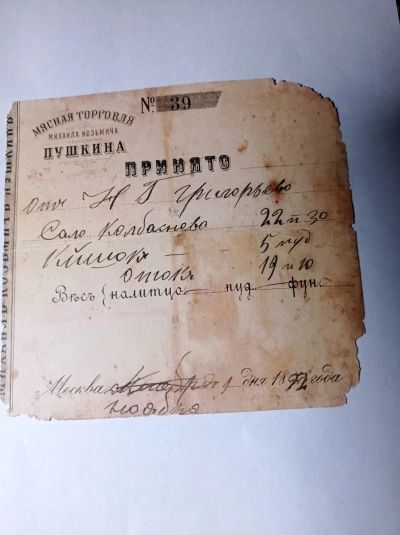 № 39
МЯСНАЯ ТОРГОВЛЯ
МИХАИЛА КОЗЬМИЧА
ПУШКИНА
ПРИНЯТО
Н Г Григорьево
Сало Колбасново 22 п 30
5 пуд
19 п 10
Вѣсъ {налитцо пуд фун.
Москва дня 1892 года
ноября